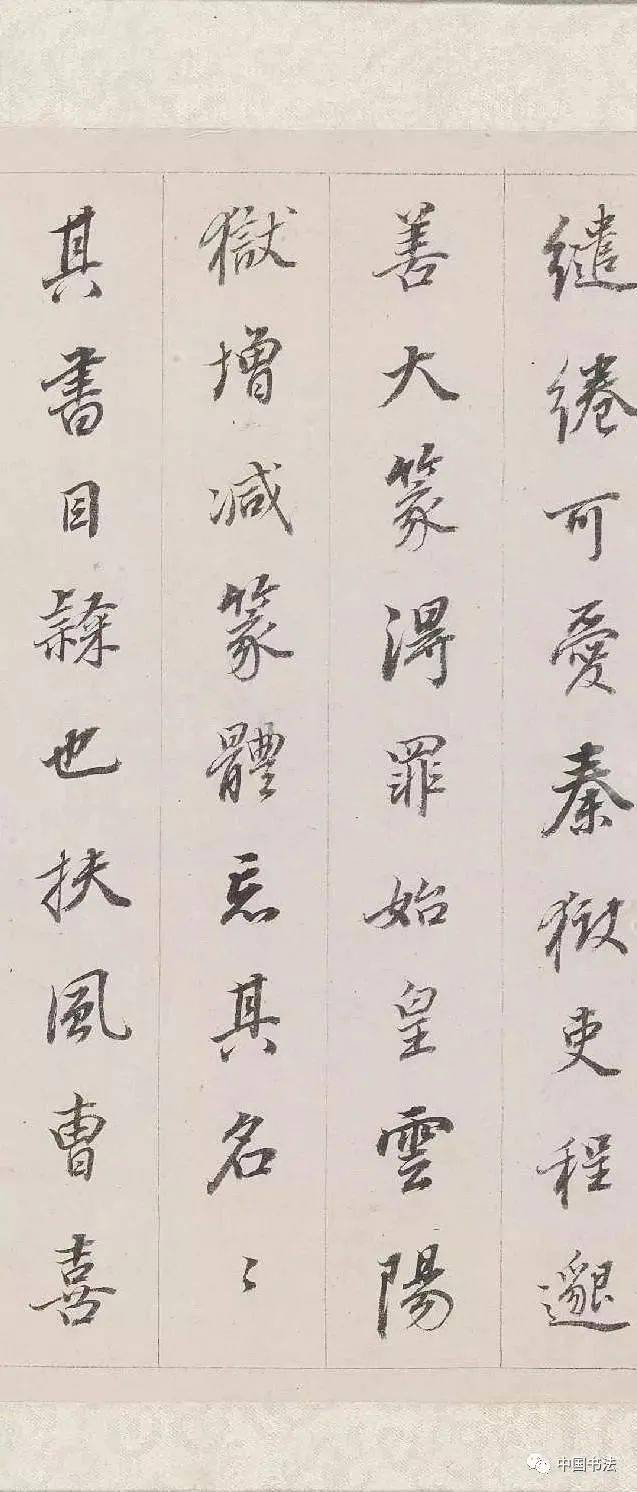 繾綣可愛秦獄吏程邈
善大篆得罪始皇雲陽
獄增減篆體忘其名〻
其書目隸也扶風曹喜
中国书法